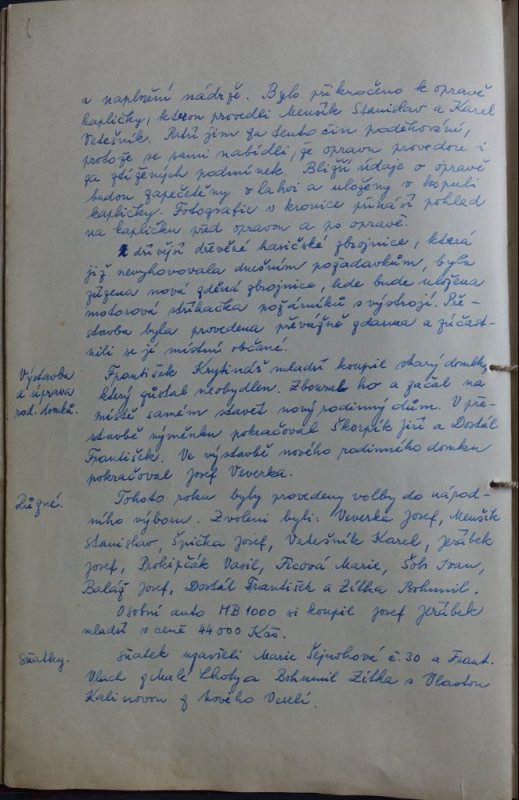 a naplnění nádrže. Bylo přikročeno k opravě
kapličky, kterou provedli Menšík Stanislav a Karel
Vetešník. Patří jim za tento čin poděkování,
protože se sami nabídli, že opravu provedou i
za ztížených podmínek. Bližší údaje o opravě
budou zapečetěny v lahvi a uloženy v kopuli
kapličky. Fotografie v kronice přináší pohled
na kapličku před opravou a po opravě.
Z dřívější dřevěné hasičské zbrojnice, která
již nevyhovovala dnešním požadavkům, byla
zřízena nová zděná zbrojnice, kde bude uložena
motorová stříkačka požárníků s výstrojí. Pře-
stavba byla provedena převážně zdarma a zúčast-
nili se jí místní občané.
Výstavba
a úprava
rod. domků.
František Krytinář mladší koupil starý domek,
který zůstal neobydlen. Zboural ho a začal na
místě samém stavět nový rodinný dům. V pře-
stavbě výměnku pokračoval Škorpík Jiří a Dostál
František. Ve výstavbě nového rodinného domku
pokračoval Josef Veverka.
Různé.
Tohoto roku byly provedeny volby do národ-
ního výboru. Zvoleni byli: Veverka Josef, Menšík
Stanislav, Špička Josef, Vetešník Karel, Jeřábek
Josef, Prokipčák Vasil, Ficová Marie, Šob Ivan,
Baláž Josef, Dostál František a Zítka Bohumil.
Osobní auto MB 1000 si koupil Josef Jeřábek
mladší v ceně 44 000 Kčs.
Sňatky.
Sňatek uzavřeli Marie Šejnohová č. 30 a Frant.
Vlach z Malé Lhoty a Bohumil Zítka s Vlastou
Kalinovou z Nového Veselí.